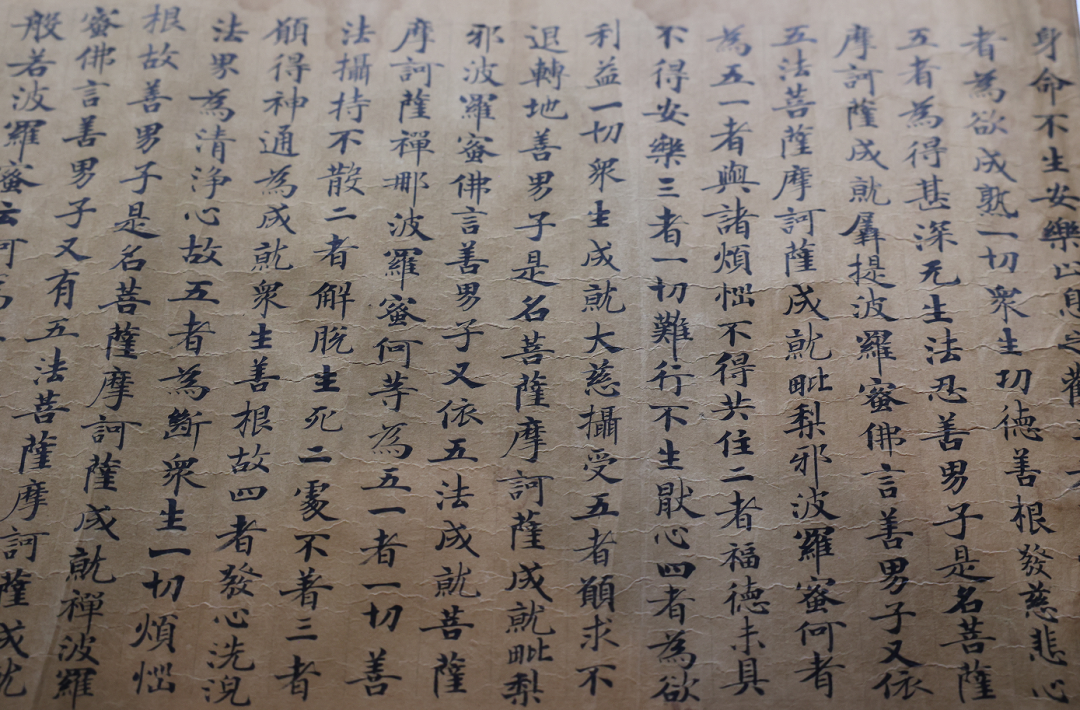 身命不生安樂止息之
者為欲成熟一切衆生切德善根發慈悲心
五者為得甚深无生法忍善男子是名菩薩
摩訶薩成就羼提波羅蜜佛言善男子又依
五法菩薩摩訶薩成就毗梨邪波羅蜜何者
為五一者與諸煩惱不得共住二者福德未具
不得安樂三者一切難行不生猒心四者為欲
利益一切衆生成就大慈攝受五者願求不
退轉地善男子是名菩薩摩訶薩成就毗梨
邪波羅蜜佛言善男子又依五法成就菩薩
摩訶薩禪那波羅蜜何等為五一者一切善
法攝持不散二者解脫生死二處不著三者
願得神通為成就衆生善根故四者發心洗浣
法界為清淨心故五者為斷衆生一切煩惱
根故善男子是名菩薩摩訶薩成就禪波羅
蜜佛言善男子又有五法菩薩摩訶薩成就
般若波羅蜜云何為